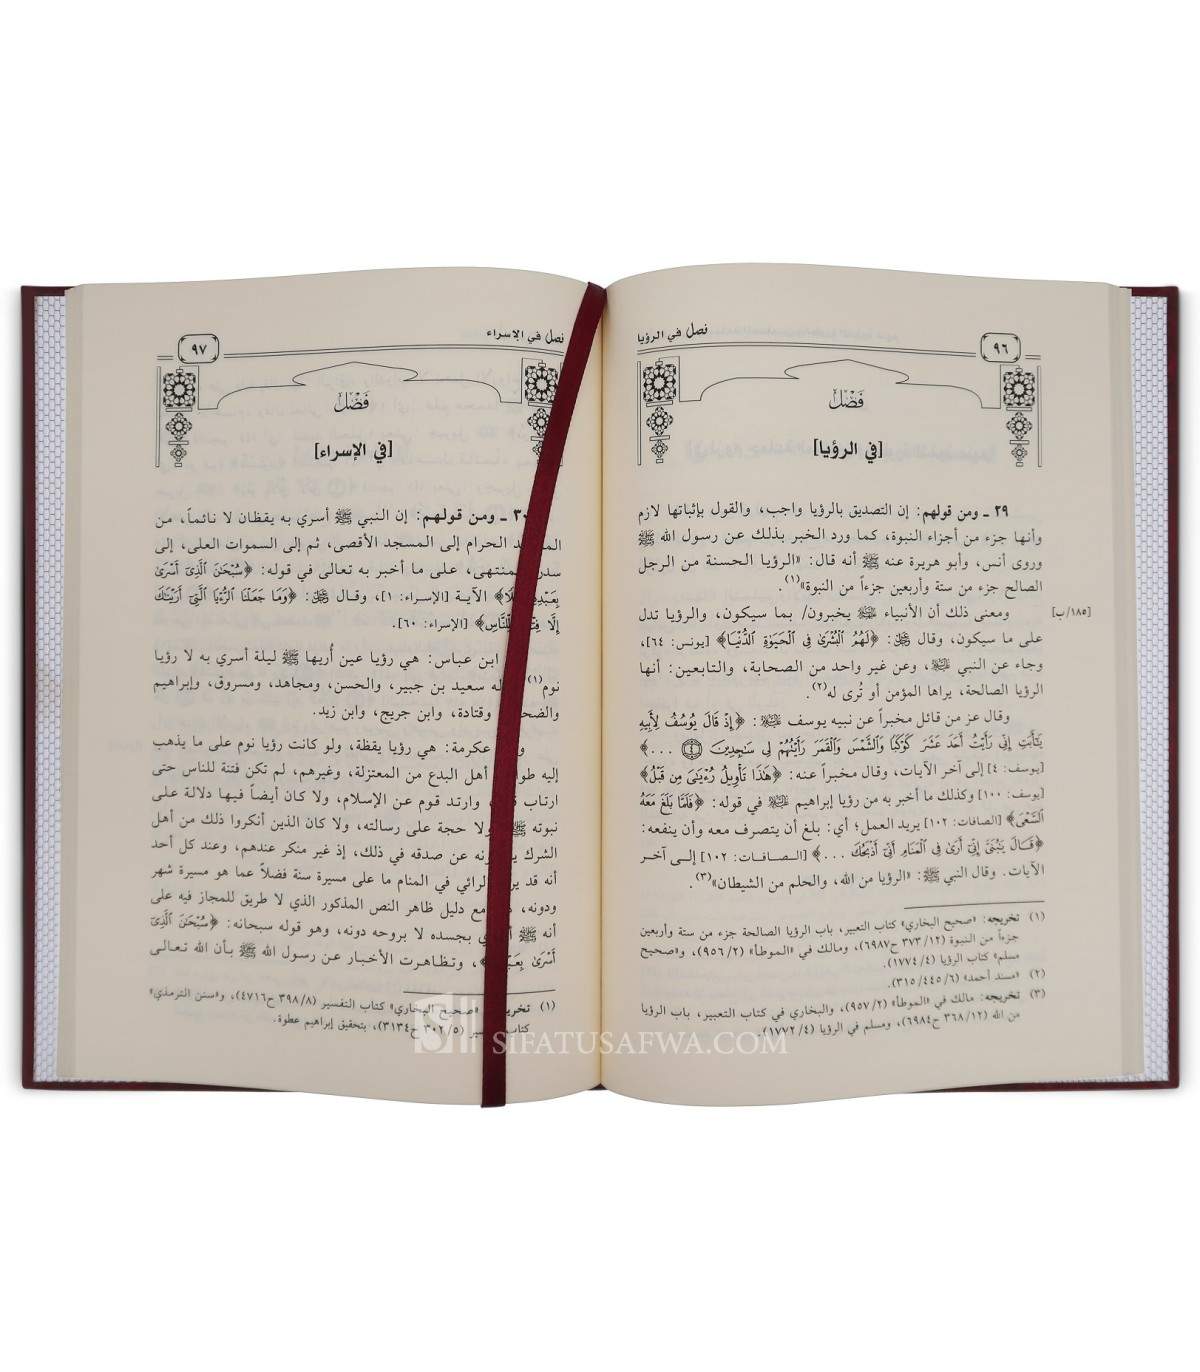 ٩٦
فصل في الرؤيا
فَصْلٌ
[في الرؤيا]
٢٩ ـ ومن قولهم: إن التصديق بالرؤيا واجب، والقول بإثباتها لازم
وأنها جزء من أجزاء النبوة، كما ورد الخبر بذلك عن رسول الله ﷺ
وروى أنس، وأبو هريرة عنه ﷺ أنه قال: «الرؤيا الحسنة من الرجل
الصالح جزء من ستة وأربعين جزءاً من النبوة»(١).
ومعنى ذلك أن الأنبياء ﷺ يخبرون/ بما سيكون، والرؤيا تدل
[١٨٥/ب]
على ما سيكون، وقال ﷻ: ﴿لَهُمُ الْبُشْرَىٰ فِي الْحَيَوٰةِ الدُّنْيَا﴾ [يونس: ٦٤]،
وجاء عن النبي ﷺ، وعن غير واحد من الصحابة، والتابعين: أنها
الرؤيا الصالحة، يراها المؤمن أو تُرى له(٢).
وقال عز من قائل مخبراً عن نبيه يوسف ﷺ: ﴿إِذْ قَالَ يُوسُفُ لِأَبِيهِ
يَٰٓأَبَتِ إِنِّي رَأَيْتُ أَحَدَ عَشَرَ كَوْكَبًا وَالشَّمْسَ وَالْقَمَرَ رَأَيْتُهُمْ لِي سَٰجِدِينَ ۝٤ ...﴾
[يوسف: ٤] إلى آخر الآيات، وقال مخبراً عنه: ﴿هَٰذَا تَأْوِيلُ رُءْيَٰيَ مِن قَبْلُ﴾
[يوسف: ١٠٠] وكذلك ما أخبر به من رؤيا إبراهيم ﷺ في قوله: ﴿فَلَمَّا بَلَغَ مَعَهُ
السَّعْيَ﴾ [الصافات: ١٠٢] يريد العمل؛ أي: بلغ أن يتصرف معه وأن ينفعه:
﴿قَالَ يَٰبُنَيَّ إِنِّي أَرَىٰ فِي الْمَنَامِ أَنِّي أَذْبَحُكَ ...﴾ [الصافات: ١٠٢] إلى آخر
الآيات. وقال النبي ﷺ: «الرؤيا من الله، والحلم من الشيطان»(٣).
(١) تخريجه: «صحيح البخاري» كتاب التعبير، باب الرؤيا الصالحة جزء من ستة وأربعين
جزءاً من النبوة (١٢/ ٣٧٣ ح٦٩٨٧)، ومالك في «الموطأ» (٢/ ٩٥٦)، و«صحيح
مسلم» كتاب الرؤيا (٤/ ١٧٧٤).
(٢) «مسند أحمد» (٦/ ٤٤٥/ ٣١٥).
(٣) تخريجه: مالك في «الموطأ» (٢/ ٩٥٧)، والبخاري في كتاب التعبير، باب الرؤيا
من الله (١٢/ ٣٦٨ ح٦٩٨٤)، ومسلم في الرؤيا (٤/ ١٧٧٢).
فصل في الإسراء
٩٧
فَصْلٌ
[في الإسراء]
٣٠ ـ ومن قولهم: إن النبي ﷺ أسري به يقظان لا نائماً، من
الحرام إلى المسجد الأقصى، ثم إلى السموات العلى، إلى
على ما أخبر به تعالى في قوله: ﴿سُبْحَٰنَ الَّذِي أَسْرَىٰ
الآية [الإسراء: ١]، وقال ﷻ: ﴿وَمَا جَعَلْنَا الرُّءْيَا الَّتِي أَرَيْنَٰكَ
إِلَّا لِّلنَّاسِ﴾ [الإسراء: ٦٠].
ابن عباس: هي رؤيا عين أُريها ﷺ ليلة أسري به لا رؤيا
نوم(١) سعيد بن جبير، والحسن، ومجاهد، ومسروق، وإبراهيم
وقتادة، وابن جريج، وابن زيد.
عكرمة: هي رؤيا يقظة، ولو كانت رؤيا نوم على ما يذهب
إليه أهل البدع من المعتزلة، وغيرهم، لم تكن فتنة للناس حتى
ارتاب وارتد قوم عن الإسلام، ولا كان أيضاً فيها دلالة على
نبوته ﷺ ولا حجة على رسالته، ولا كان الذين أنكروا ذلك من أهل
الشرك عن صدقه في ذلك، إذ غير منكر عندهم، وعند كل أحد
أنه قد الرائي في المنام ما على مسيرة سنة فضلاً عما هو مسيرة شهر
ودونه، مع دليل ظاهر النص المذكور الذي لا طريق للمجاز فيه على
أنه ﷺ بجسده لا بروحه دونه، وهو قوله سبحانه: ﴿سُبْحَٰنَ الَّذِي
أَسْرَىٰ ﴾، وتظاهرت الأخبار عن رسول الله ﷺ بأن الله تعالى
(١) «صحيح البخاري» كتاب التفسير (٨/ ٣٩٨ ح٤٧١٦)، و«سنن الترمذي»
كتاب (٥/ ٣٠٢ ح٣١٣٤)، بتحقيق إبراهيم عطوة.
SIFATUSAFWA.COM